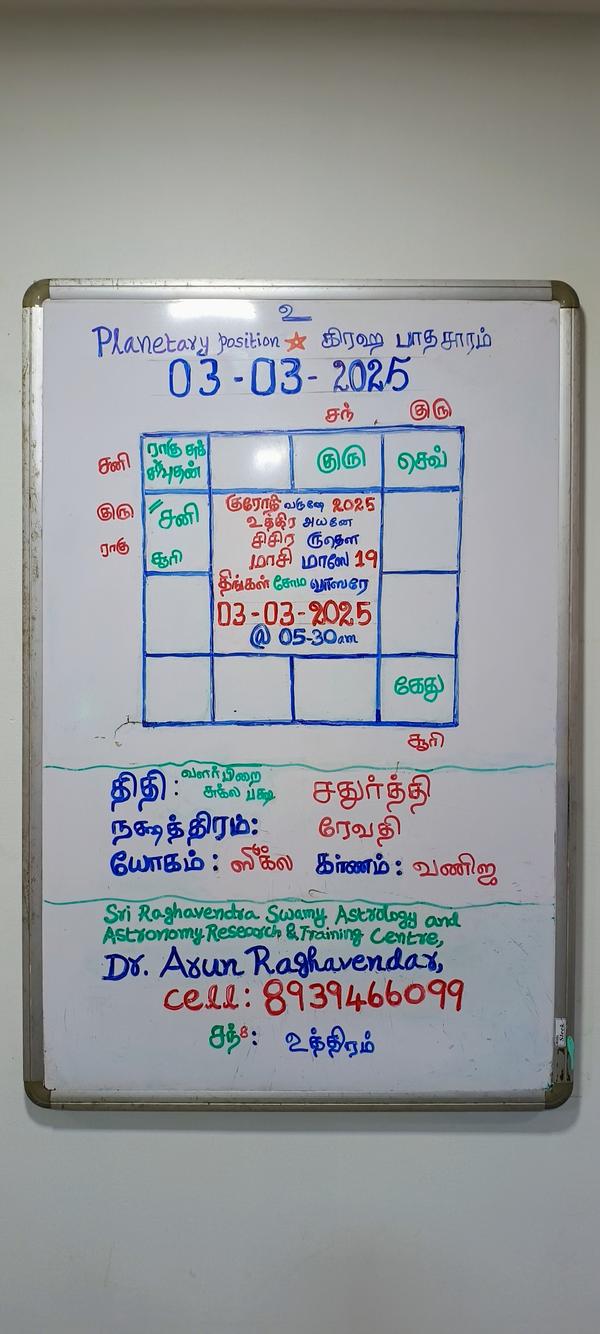 உ
Planetary position கிரஹ பாதசாரம்
03-03-2025
சந் குரு
சனி
ராகு சுக்
புதன்
குரு
செவ்
குரு
ராகு
சனி
சூரி
குரோதி வருஷே 2025
உத்திர அயனே
சிசிர ருதௌ
மாசி மாஸே 19
திங்கள் சோம வாஸரே
03-03-2025
@ 05-30am
கேது
சூரி
திதி: வளர்பிறை
சுக்ல பக்ஷ
சதுர்த்தி
நக்ஷத்திரம்: ரேவதி
யோகம்: கர்ணம்: வணிஜ
Sri Raghavendra Swamy Astrology and
Astronomy Research & Training Centre,
Dr. Arun Raghavendar,
cell: 8939466099
சந்8: உத்திரம்